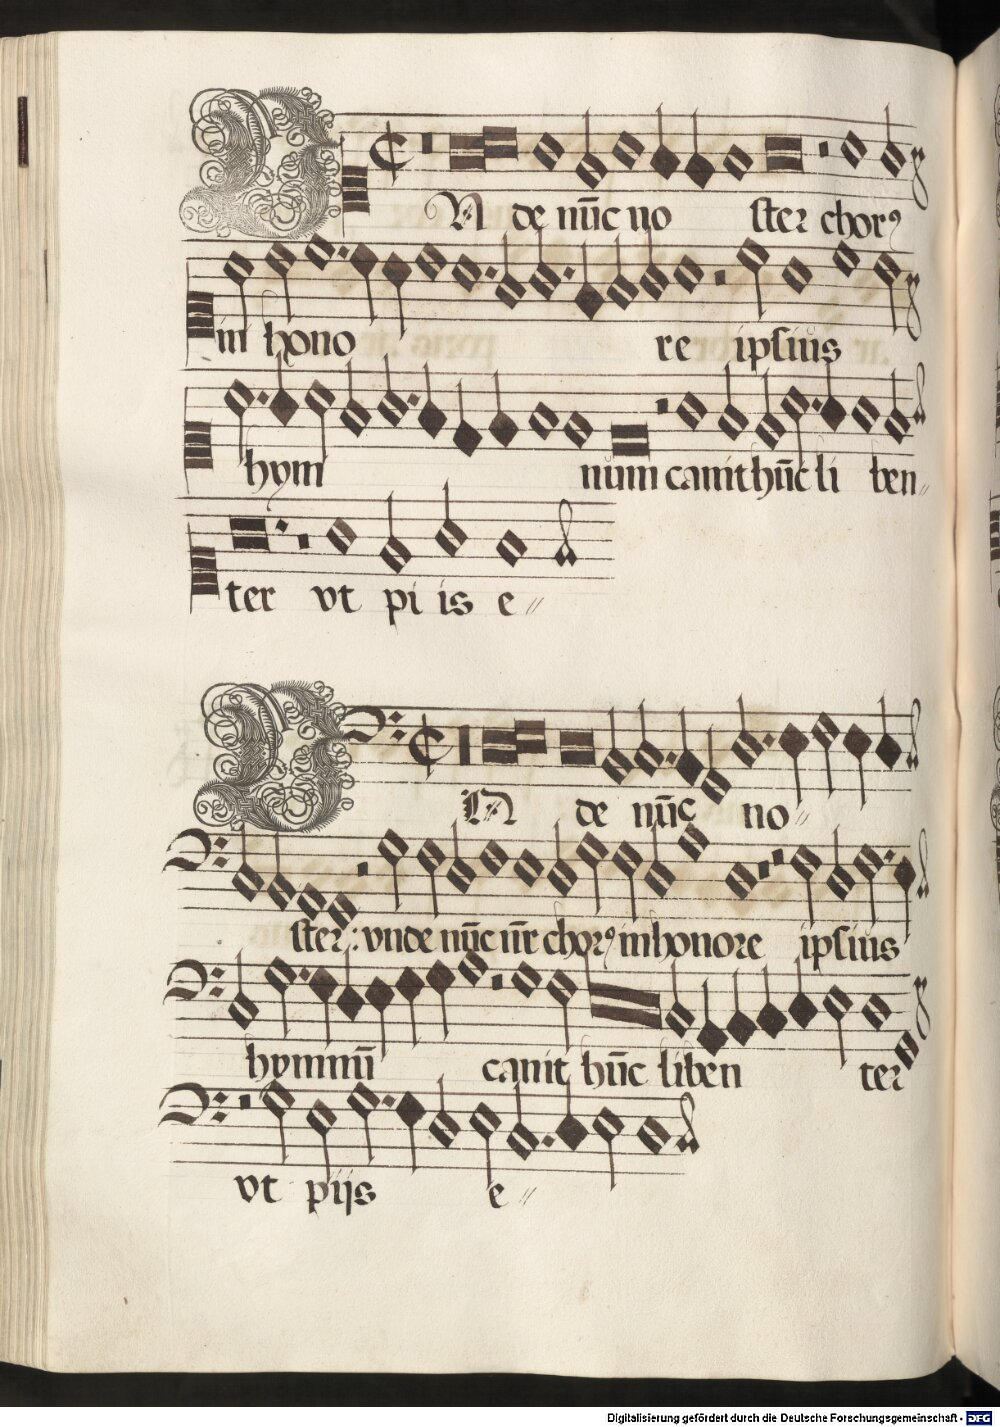 VNde nūc no ster chorꝰ
in hono re ipsius
hym num canit hūc li ben
ter vt pi is e
VNde nūc no
ster: vnde nūc nr̄ chorꝰ in honore ipsius
hymnū canit hūc liben ter
vt pijs e
Digitalisierung gefördert durch die Deutsche Forschungsgemeinschaft - DFG